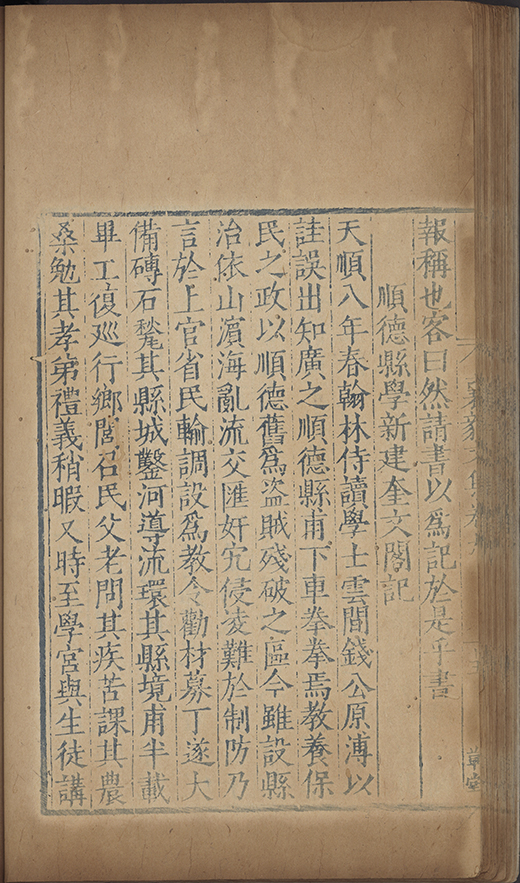 報稱也客曰然請書以爲記於是乎書
順德縣學新建奎文閣記
天順八年春翰林侍讀學士雲間錢公原溥以
詿誤出知廣之順德縣甫下車拳拳焉教養保
民之政以順德舊爲盗賊殘破之區今雖設縣
治依山濵海亂流交匯奸宄侵凌難於制防乃
言於上官省民輸調設爲教令勸材募丁遂大
備磚石甃其縣城鑿河導流環其縣境甫半載
畢工復廵行鄉閭召民父老問其疾苦課其農
桑勉其孝弟禮義稍暇又時至學宮與生徒講
草堂